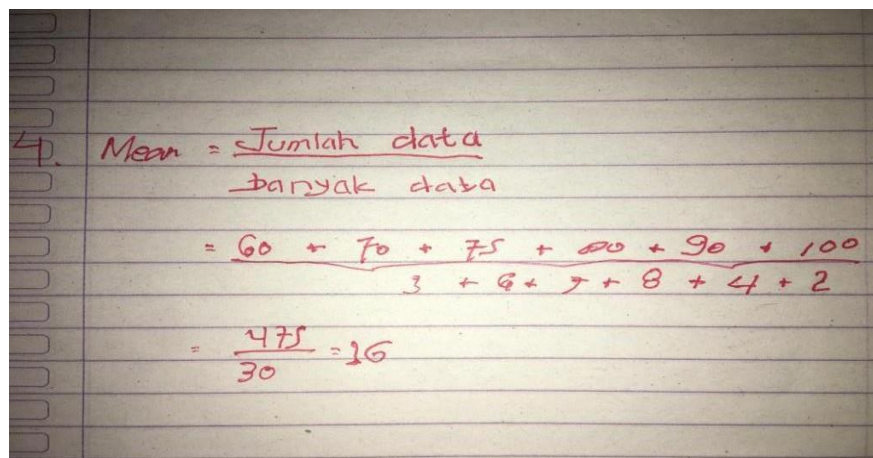 4. Mean = Jumlah data
banyak data
= 60 + 70 + 75 + 80 + 90 + 100
3 + 6 + 7 + 8 + 4 + 2
= 475
30 = 16